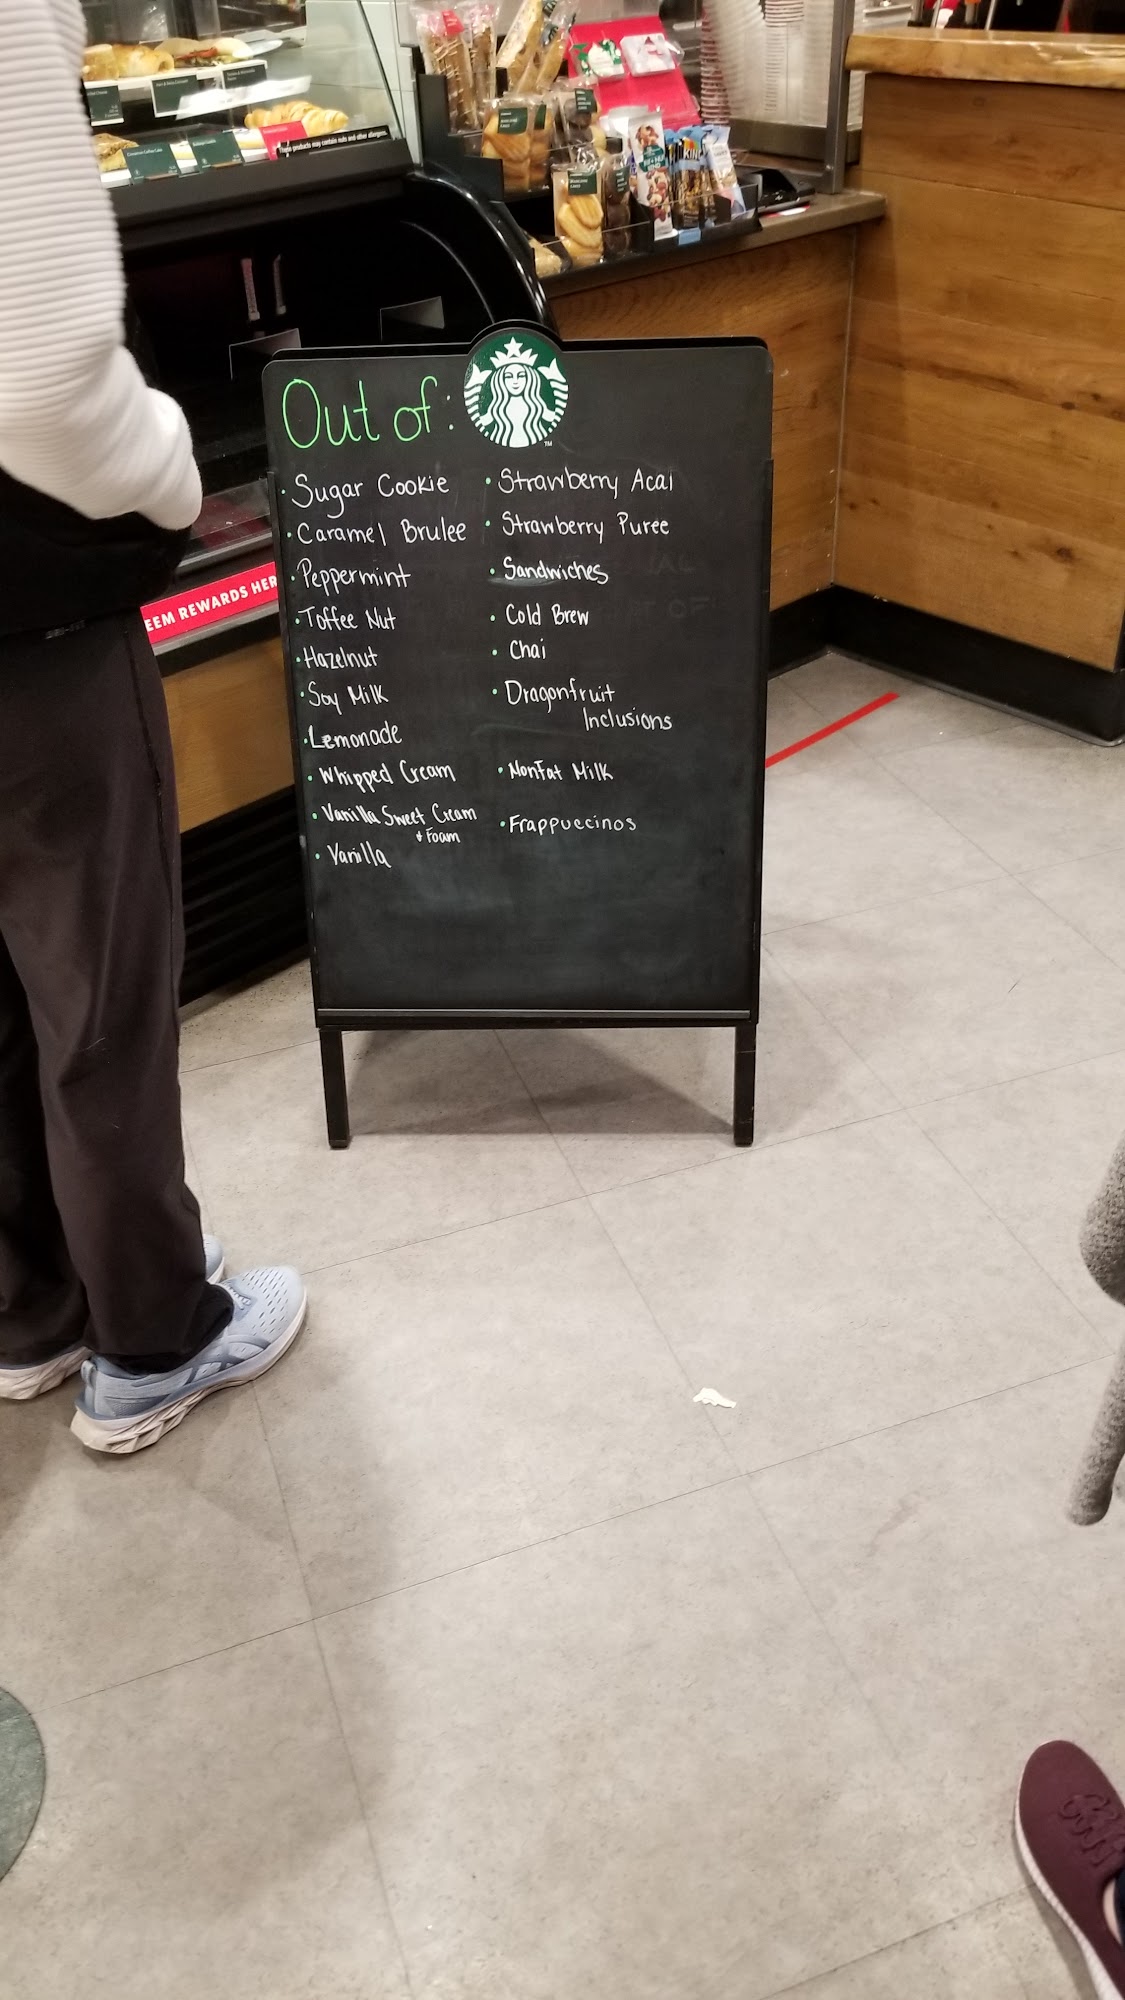 These products may contain nuts and other allergens.
KIND
EEM REWARDS HER
Out of:
TM
• Sugar Cookie
• Caramel Brulee
• Peppermint
• Toffee Nut
• Hazelnut
• Soy Milk
• Lemonade
• Whipped Cream
• Vanilla Sweet Cream
+ Foam
• Vanilla
• Strawberry Acai
• Strawberry Puree
• Sandwiches
• Cold Brew
• Chai
• Dragonfruit
Inclusions
• Nonfat Milk
• Frappuccinos